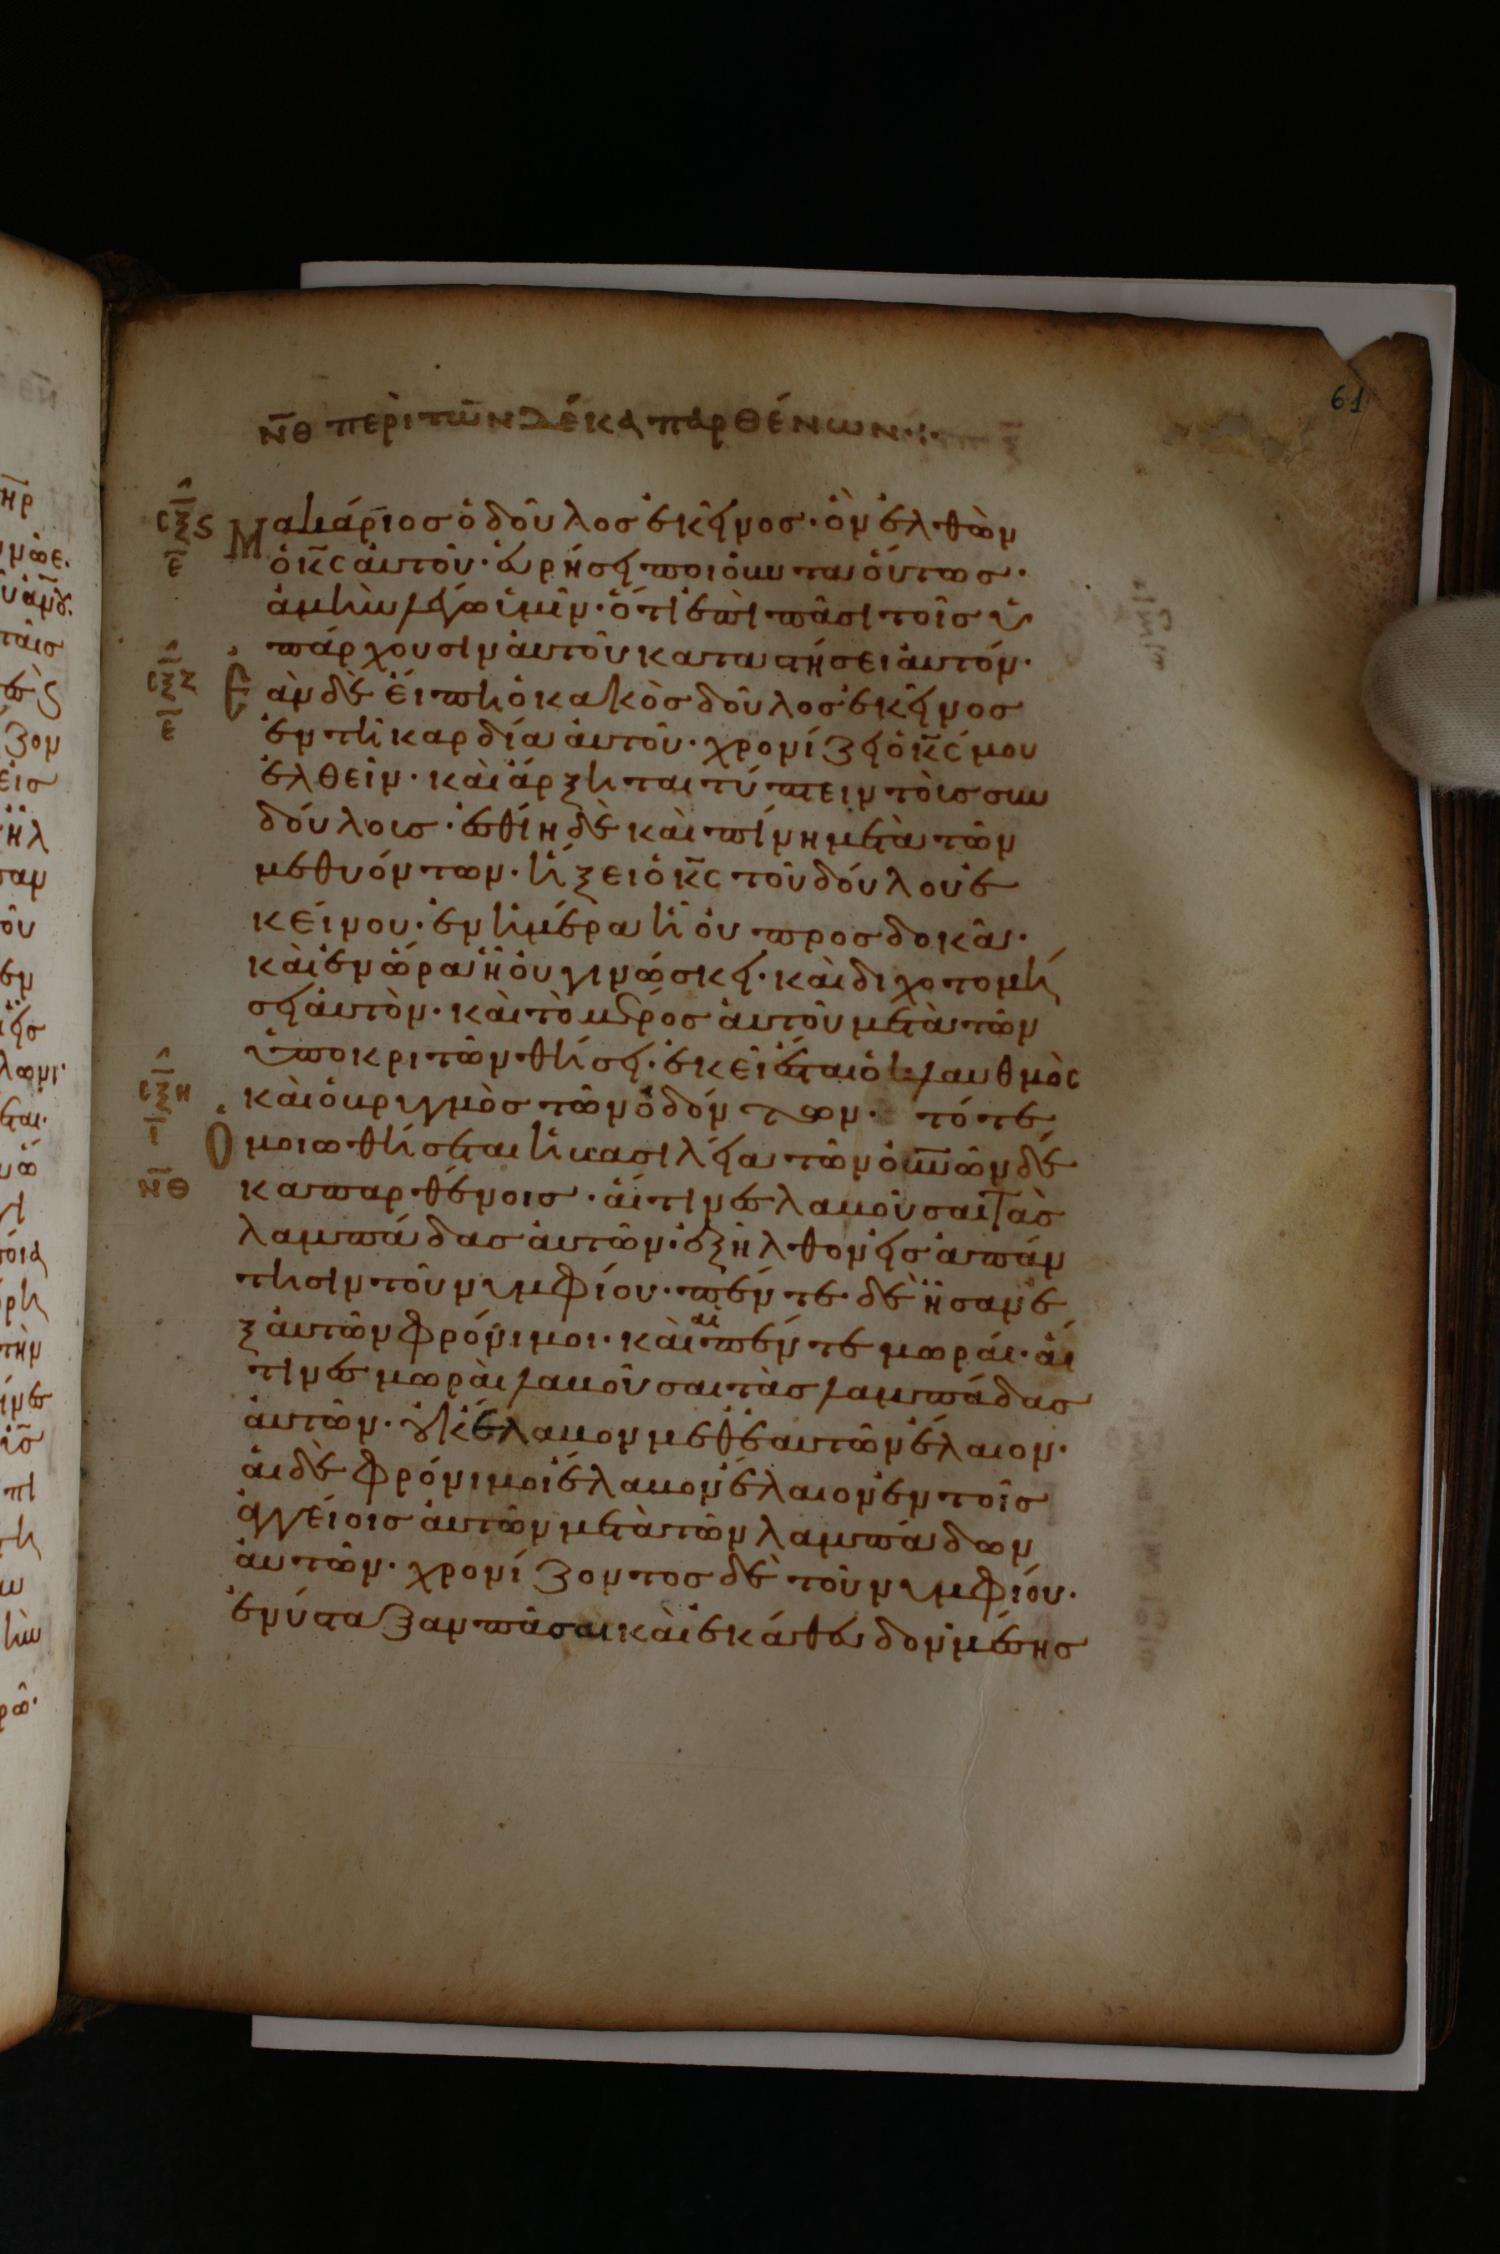 61
ν̅θ περὶ τῶν δέκα παρθένων
σ̅ξ̅ϛ ε̅
Μακάριος ὁ δοῦλος ἐκεῖνος· ὃν ἐλθὼν
ὁ κ̅ς αὐτοῦ· εὑρήσει ποιοῦντα οὕτως·
ἀμὴν λέγω ὑμῖν· ὅτι ἐπὶ πᾶσι τοῖς ὑ
πάρχουσιν αὐτοῦ καταστήσει αὐτόν·
σ̅ξ̅ζ ε̅
Ἐὰν δὲ εἴπη ὁ κακὸς δοῦλος ἐκεῖνος
ἐν τῆ καρδία αὐτοῦ· χρονίζει ὁ κ̅ς μου
ἐλθεῖν· καὶ ἄρξηται τύπτειν τοὺς συν
δούλους· ἐσθίη δὲ καὶ πίνη μετὰ τῶν
μεθυόντων· ἥξει ὁ κ̅ς τοῦ δούλου ἐ
κείνου· ἐν ἡμέρα ἧ οὐ προσδοκᾶ·
καὶ ἐν ὥρα ἧ οὐ γινώσκει· καὶ διχοτομή
σει αὐτὸν· καὶ τὸ μέρος αὐτοῦ μετὰ τῶν
ὑποκριτῶν θήσει· ἐκεῖ ἔσται ὁ κλαυθμὸς
σ̅ξ̅η ι̅
καὶ ὁ βρυγμὸς τῶν ὀδόντων· τότε
Ὁμοιωθήσεται ἡ βασιλεία τῶν οὐ̅νῶν δέ
ν̅θ
κα παρθένοις· αἵτινες λαβοῦσαι τὰς
λαμπάδας αὐτῶν· ἐξῆλθον εἰς ἀπάν
τησιν τοῦ νυμφίου· πέντε δὲ ἦσαν ἐ
ξ αὐτῶν φρόνιμοι· καὶ αἱ πέντε μωραί· αἵ
τινες μωραὶ λαβοῦσαι τὰς λαμπάδας
αὐτῶν· οὐκ ἔλαβον μεθ ἑαυτῶν ἔλαιον·
αἱ δὲ φρόνιμοι ἔλαβον ἔλαιον ἐν τοῖς
ἀγγείοις αὐτῶν μετὰ τῶν λαμπάδων
αὐτῶν· χρονίζοντος δὲ τοῦ νυμφίου·
ἐνύσταξαν πᾶσαι καὶ ἐκάθευδον· μέσης